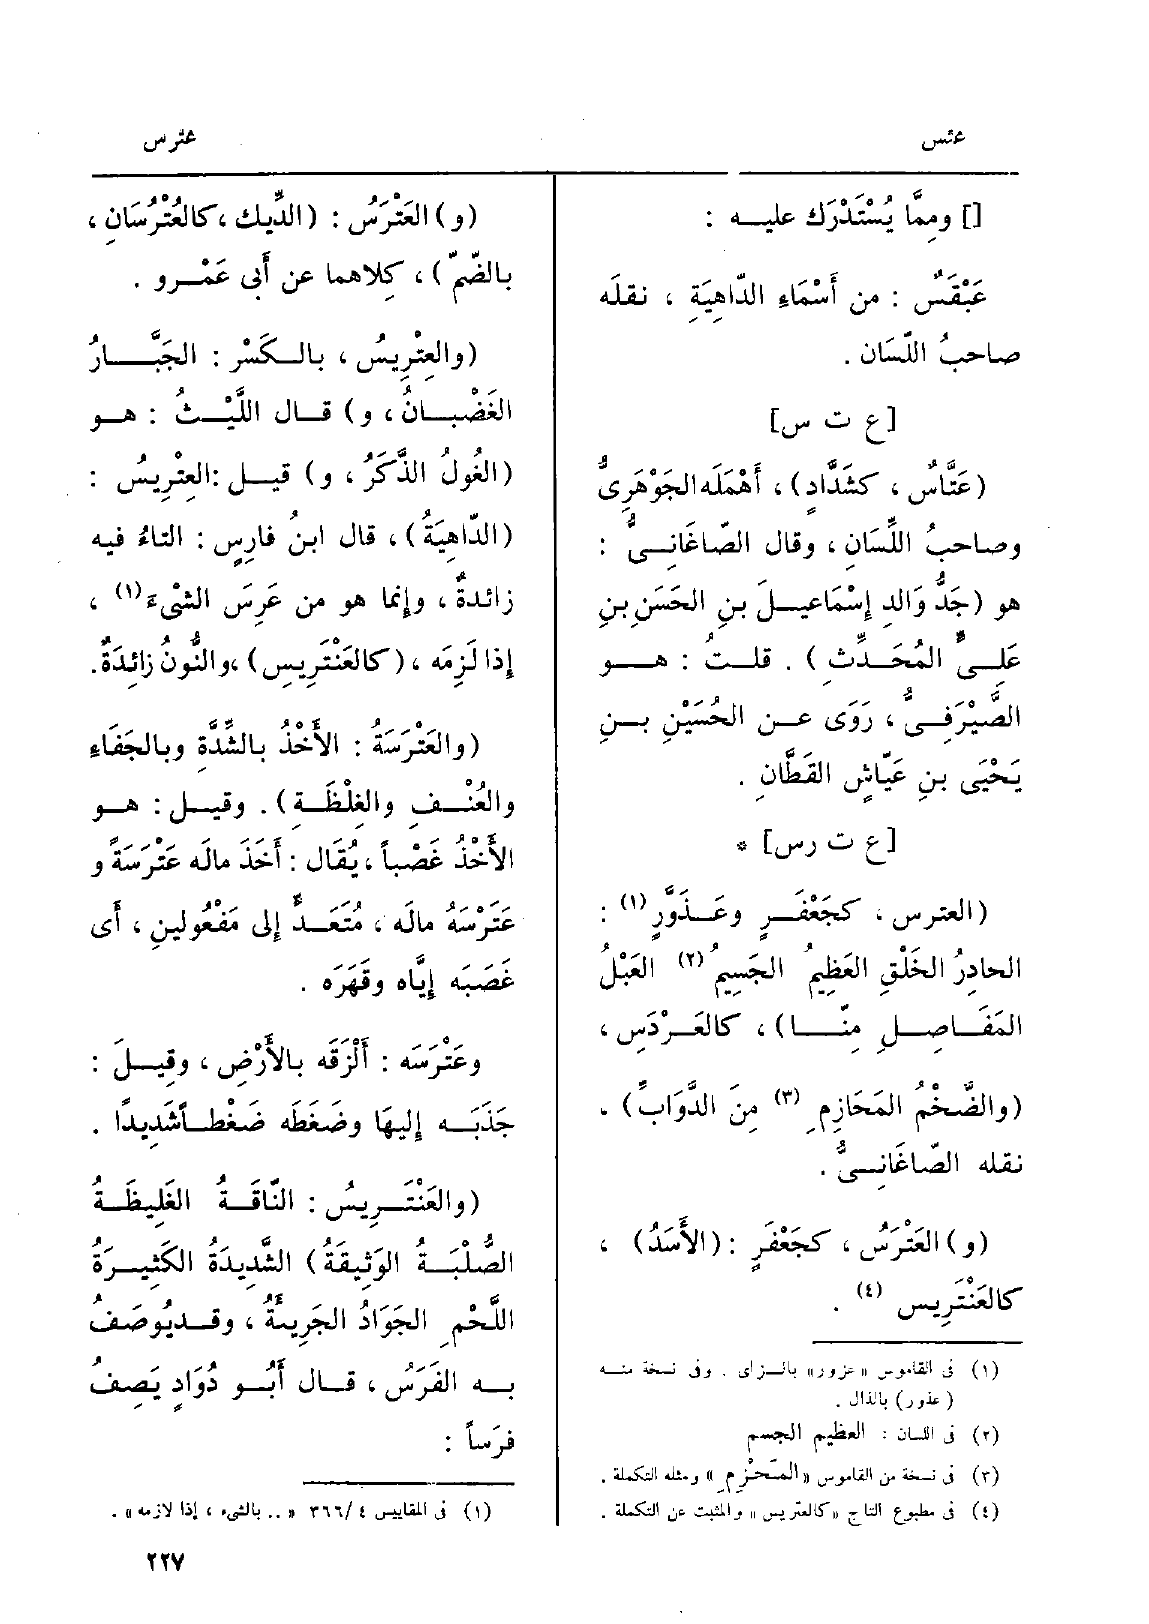 عتس
عترس
[] ومِمَّا يُسْتَدْرَك عليــه :
عَبْقَسٌ : من أَسْمَاءِ الدَّاهِيَةِ ، نقلَه
صاحبُ اللِّسَان .
[ع ت س]
(عَتَّاسٌ ، كشَدَّادٍ) ، أَهْمَلَه الجَوْهَرِىُّ
وصاحبُ اللِّسَانِ ، وقال الصّاغَانِــىُّ :
هو (جَدُّ وَالدِ إِسْمَاعيــلَ بنِ الحَسَنِ بنِ
عَلِــىٍّ المُحَــدِّثِ) . قلــتُ : هــو
الصَّيْرَفِــىُّ ، رَوَى عــن الحُسَيْنِ بــنِ
يَحْيَى بنِ عَيّاشٍ القَطَّانِ .
[ع ت ر س] *
(العترس ، كجَعْفَــرٍ وعَــذَوَّرٍ (١) :
الحادِرُ الخَلْقِ العَظِيمُ الجَسِيمُ (٢) العَبْلُ
المَفَــاصِــلِ مِنّــا) ، كالعَــرْدَسِ ،
(والضَّخْمُ المَحَازِمِ (٣) مِنَ الدَّوَابِّ) .
نقله الصّاغَانِــىُّ .
(و) العَتْرَسُ ، كجَعْفَرٍ : (الأَسَدُ) ،
كالعَنْتَرِيس (٤) .
(١) فى القاموس «عزور» بالــزاى . وفى نسخة منــه
(عذور) بالذال .
(٢) فى اللسان : العظيم الجسم
(٣) فى نسخة من القاموس «المَحْزِمِ» ومثله التكملة .
(٤) فى مطبوع التاج «كالعتريس» والمثبت عن التكملة .
(و) العَتْرَسُ : (الدِّيك ، كالعُتْرُسَانِ ،
بالضّمّ) ، كِلاهما عن أَبى عَمْــرو .
(والعِتْرِيسُ ، بالــكَسْر : الجَبَّــارُ
الغَضْبــانُ ، و) قــال اللَّيْثُ : هــو
(الغُولُ الذَّكَرُ ، و) قيــل : العِتْرِيسُ :
(الدّاهِيَةُ) ، قال ابنُ فارِسٍ : التاءُ فيه
زائدةٌ ، وإنما هو من عَرِسَ الشىْءَ (١) ،
إذا لَزِمَه ، (كالعَنْتَرِيس) ، والنُّونُ زائِدَةٌ.
(والعَتْرَسَةُ : الأَخْذُ بالشِّدَّةِ وبالجَفَاءِ
والعُنْــفِ والغِلْظَــةِ) . وقيــل : هــو
الأَخْذُ غَصْباً ، يُقَال : أَخَذَ مالَه عَتْرَسَةً و
عَتَرْسَهُ مالَه ، مُتَعَــدٍّ إلى مَفْعُولينِ ، أَى
غَصَبَه إِيَّاه وقَهَرَه .
وعَتْرَسَه : أَلْزَقَه بالأَرْضِ ، وقِيــلَ :
جَذَبَــه إليهَا وضَغَطَه ضَغْطــاً شَدِيدًا .
(والعَنْتَــرِيسُ : النّاقَــةُ الغَلِيظَــةُ
الصُّلْبَــةُ الوَثِيقَةُ) الشَّدِيدَةُ الكَثِيــرَةُ
اللَّحْمِ الجَوَادُ الجَرِيئَةُ ، وقــد يُوصَفُ
بــه الفَرَسُ ، قــال أَبُــو دُوَادٍ يَصِفُ
فرَساً :
(١) فى المقاييس ٤/٣٦٦ « .. بالشىء ، إذا لازمه» .
٢٢٧